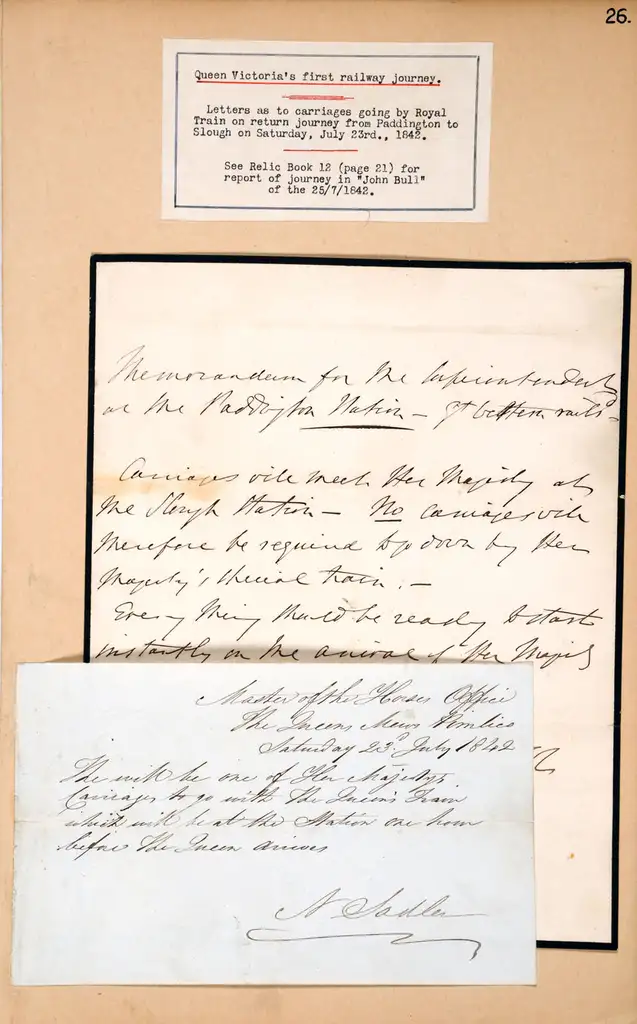 26.
Queen Victoria's first railway journey.
Letters as to carriages going by Royal
Train on return journey from Paddington to
Slough on Saturday, July 23rd., 1842.
See Relic Book 12 (page 21) for
report of journey in "John Bull"
of the 25/7/1842.
Memorandum for the Superintendent
at the Paddington Station – Gt Western
Carriages will meet Her Majesty at
the Slough Station – No carriages will
therefore be required to go down by Her
Majesty's special train. –
Every thing should be ready to start
instantly on the arrival of Her Majesty
Master of the Horses Office
The Queens Mews Pimlico
Saturday 23d July 1842
The will be one of Her Majestys
Carriages to go with the Queen's Train
which will be at the Station one hour
before the Queen arrives
N Sadler